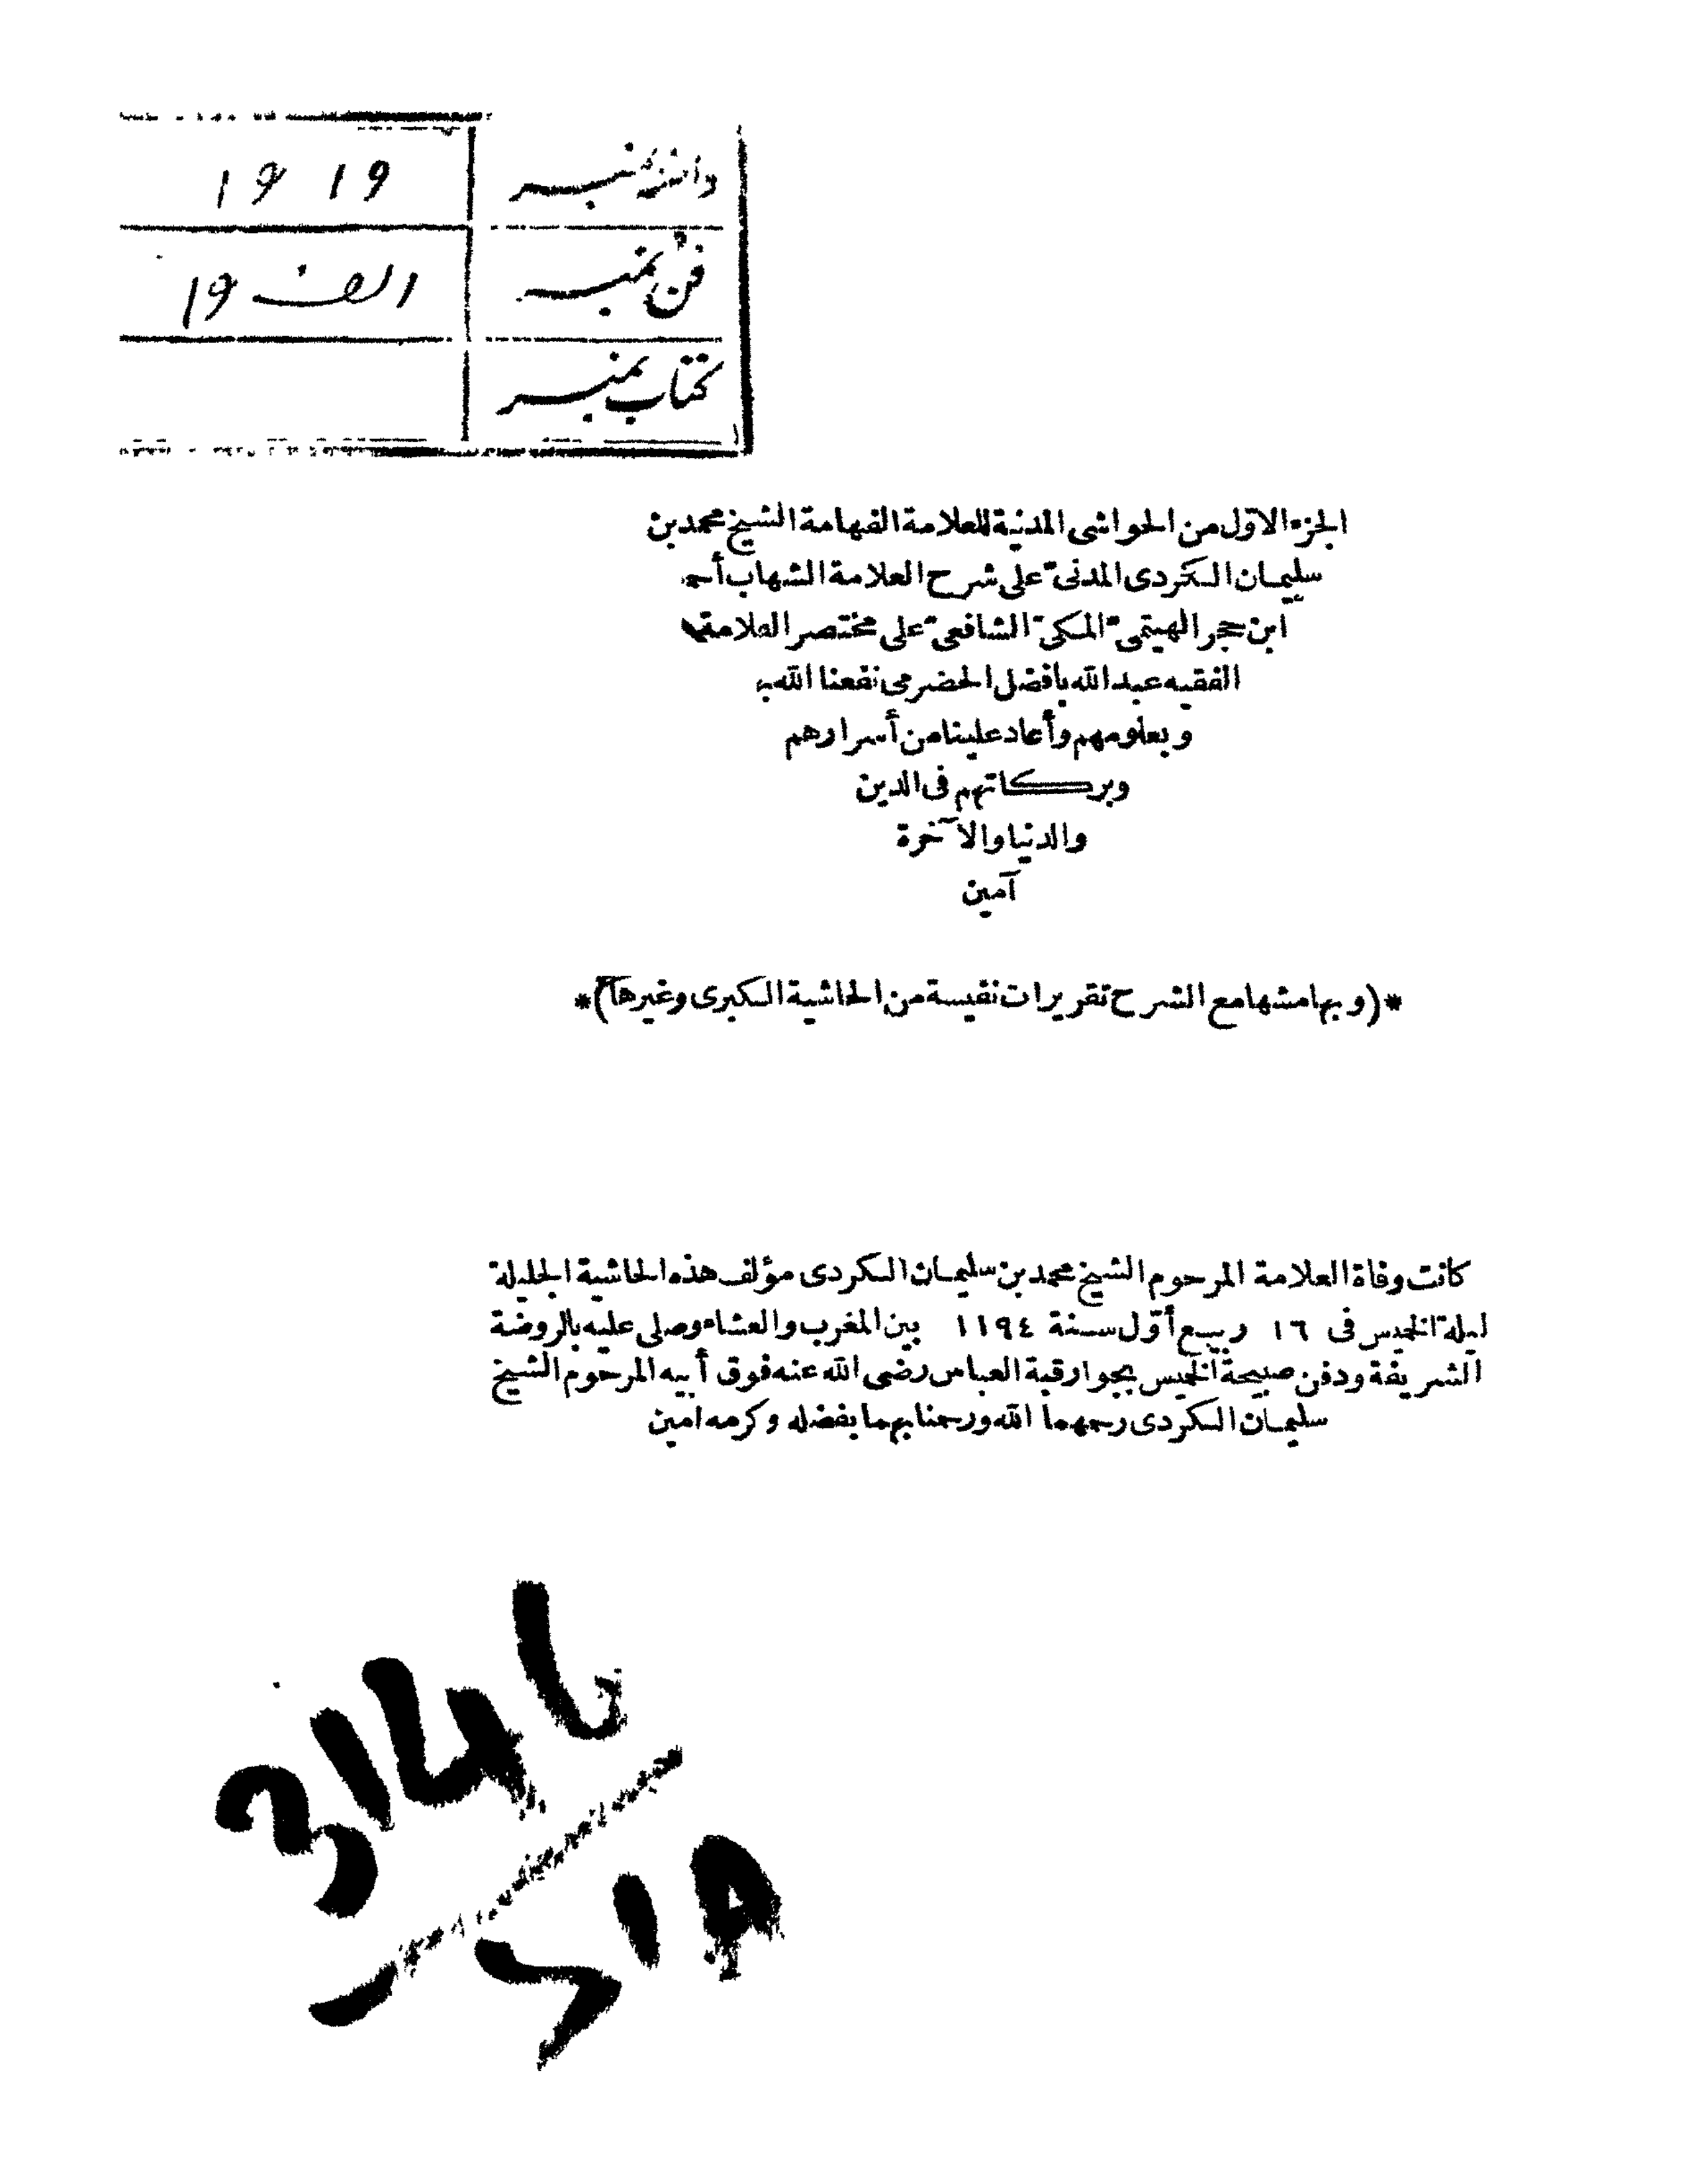 داخلہ نمبر
۱۹ ۱۹
فن نمبر
الف ۱۹
کتاب نمبر
الجزء الاوّل من الحواشى المدنية للعلامة الفهامة الشيخ محمد بن
سليمان الكردى المدنىّ على شرح العلامة الشهاب أحمد
ابن حجر الهيتمىّ المكىّ الشافعىّ على مختصر العلامة
الفقيه عبد الله بافضل الحضرمى نفعنا الله به
وبعلومهم وأعاد علينا من أسرارهم
وبركاتهم فى الدين
والدنيا والآخرة
آمين
*(وبهامشها مع الشرح تقريرات نفيسة من الحاشية الكبرى وغيرها)*
كانت وفاة العلامة المرحوم الشيخ محمد بن سليمان الكردى مؤلف هذه الحاشية الجليلة
ليلة الخميس فى ١٦ ربيع أوّل سنة ١١٩٤ بين المغرب والعشاء وصلى عليه بالروضة
الشريفة ودفن صبيحة الخميس بجوار قبة العباس رضى الله عنه فوق أبيه المرحوم الشيخ
سليمان الكردى رحمهما الله ورحمنا بهما بفضله وكرمه امين